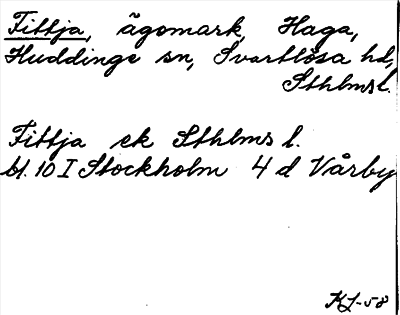 Fittja, ägomark, Haga,
Huddinge sn, Svartlösa hd,
Sthlms l.
Fittja ek Sthlms l.
bl. 10 I Stockholm 4 d Vårby
KJ-58